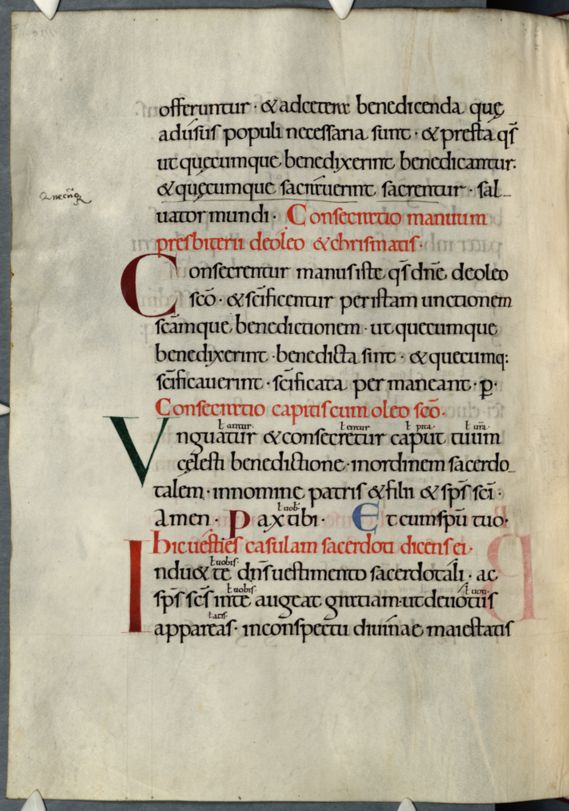 offeruntur · & ad cetera benedicenda quę
ad usus populi necessaria sunt · & presta qs̄
ut quęcumque benedixerint benedicantur:
& quęcumque sacrauerint sacrentur · sal-
uator mundi · Consecratio manuum
presbiterii de oleo & chrismatis ·
Consecrentur manus iste qs̄ dn̄e de oleo
sc̄o · & sc̄ificentur per istam unctionem
sc̄amque benedictionem · ut quecumque
benedixerint · benedicta sint · & quecumq:
sc̄ificauerint · sc̄ificata permaneant · p̱·
Consecratio capitis cum oleo sc̄o ·
ł antur · ł entur ł pita · ł ur̄a ·
Vnguatur & consecretur caput tuum
cęlesti benedictione · in ordinem sacerdo-
talem · in nomine patris & filii & sp̄s sc̄i ·
ł uob̄
Amen · Pax tibi · Et cum sp̄u tuo ·
Hic uesties casulam sacerdoti dicens ei ·
ł uobis
Indu& te dn̄s uestimento sacerdotali · ac
ł uobis
sp̄s sc̄s in te augeat gratiam · ut deuotus
ł atis
appareas · in conspectu diuinae maiestatis